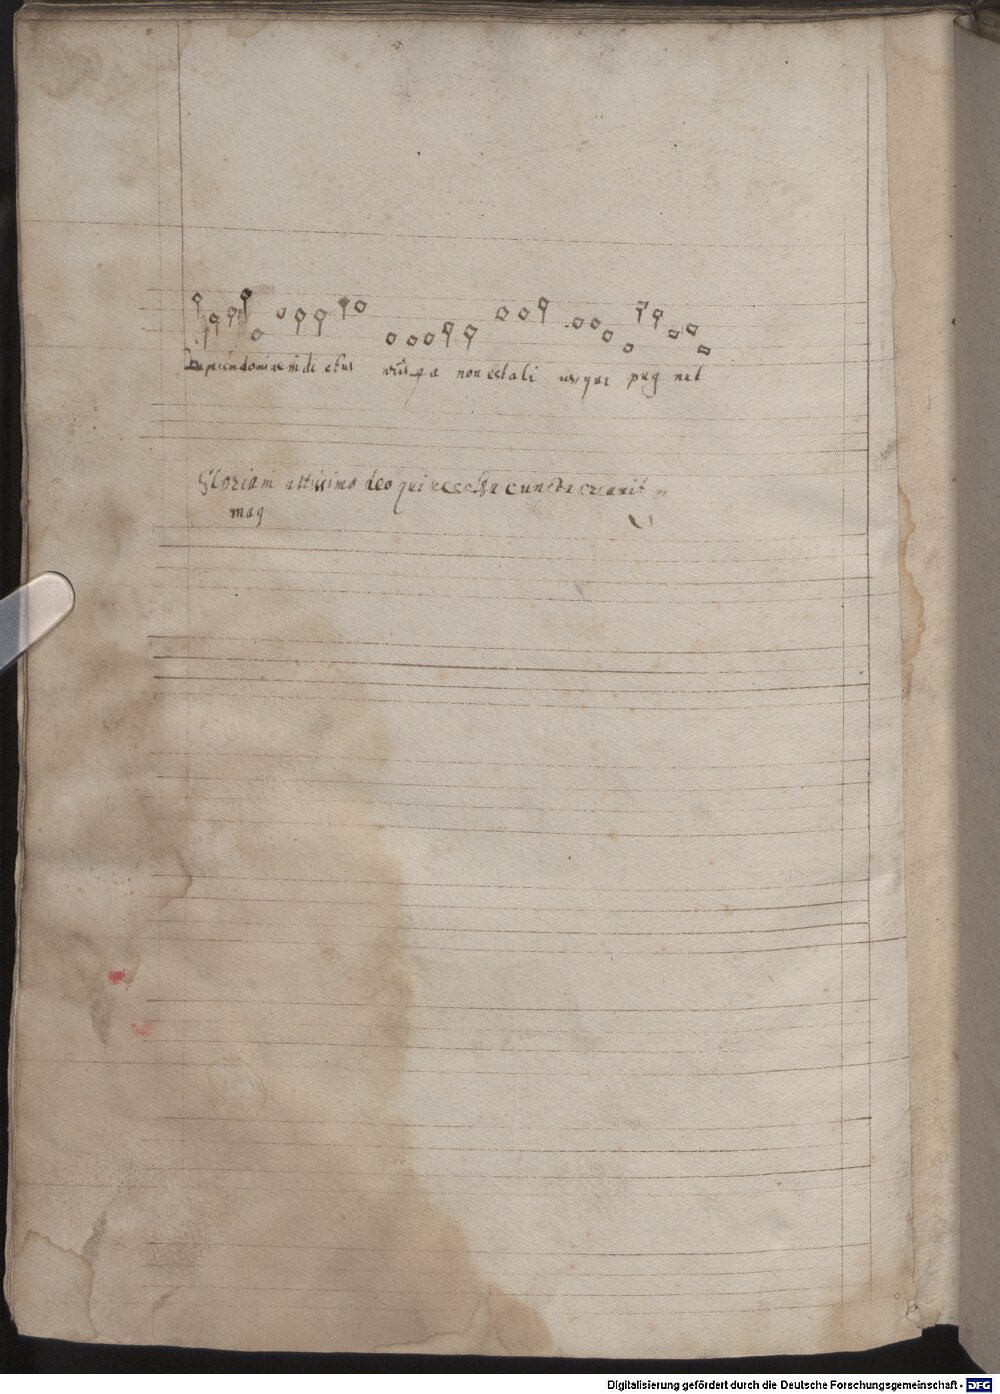 Da pacem domine in diebus nr̄is q̄a non est ali us, qui pug net
Gloriam altissimo deo qui excelsa cuncta creavit
mag
Digitalisierung gefördert durch die Deutsche Forschungsgemeinschaft - DFG